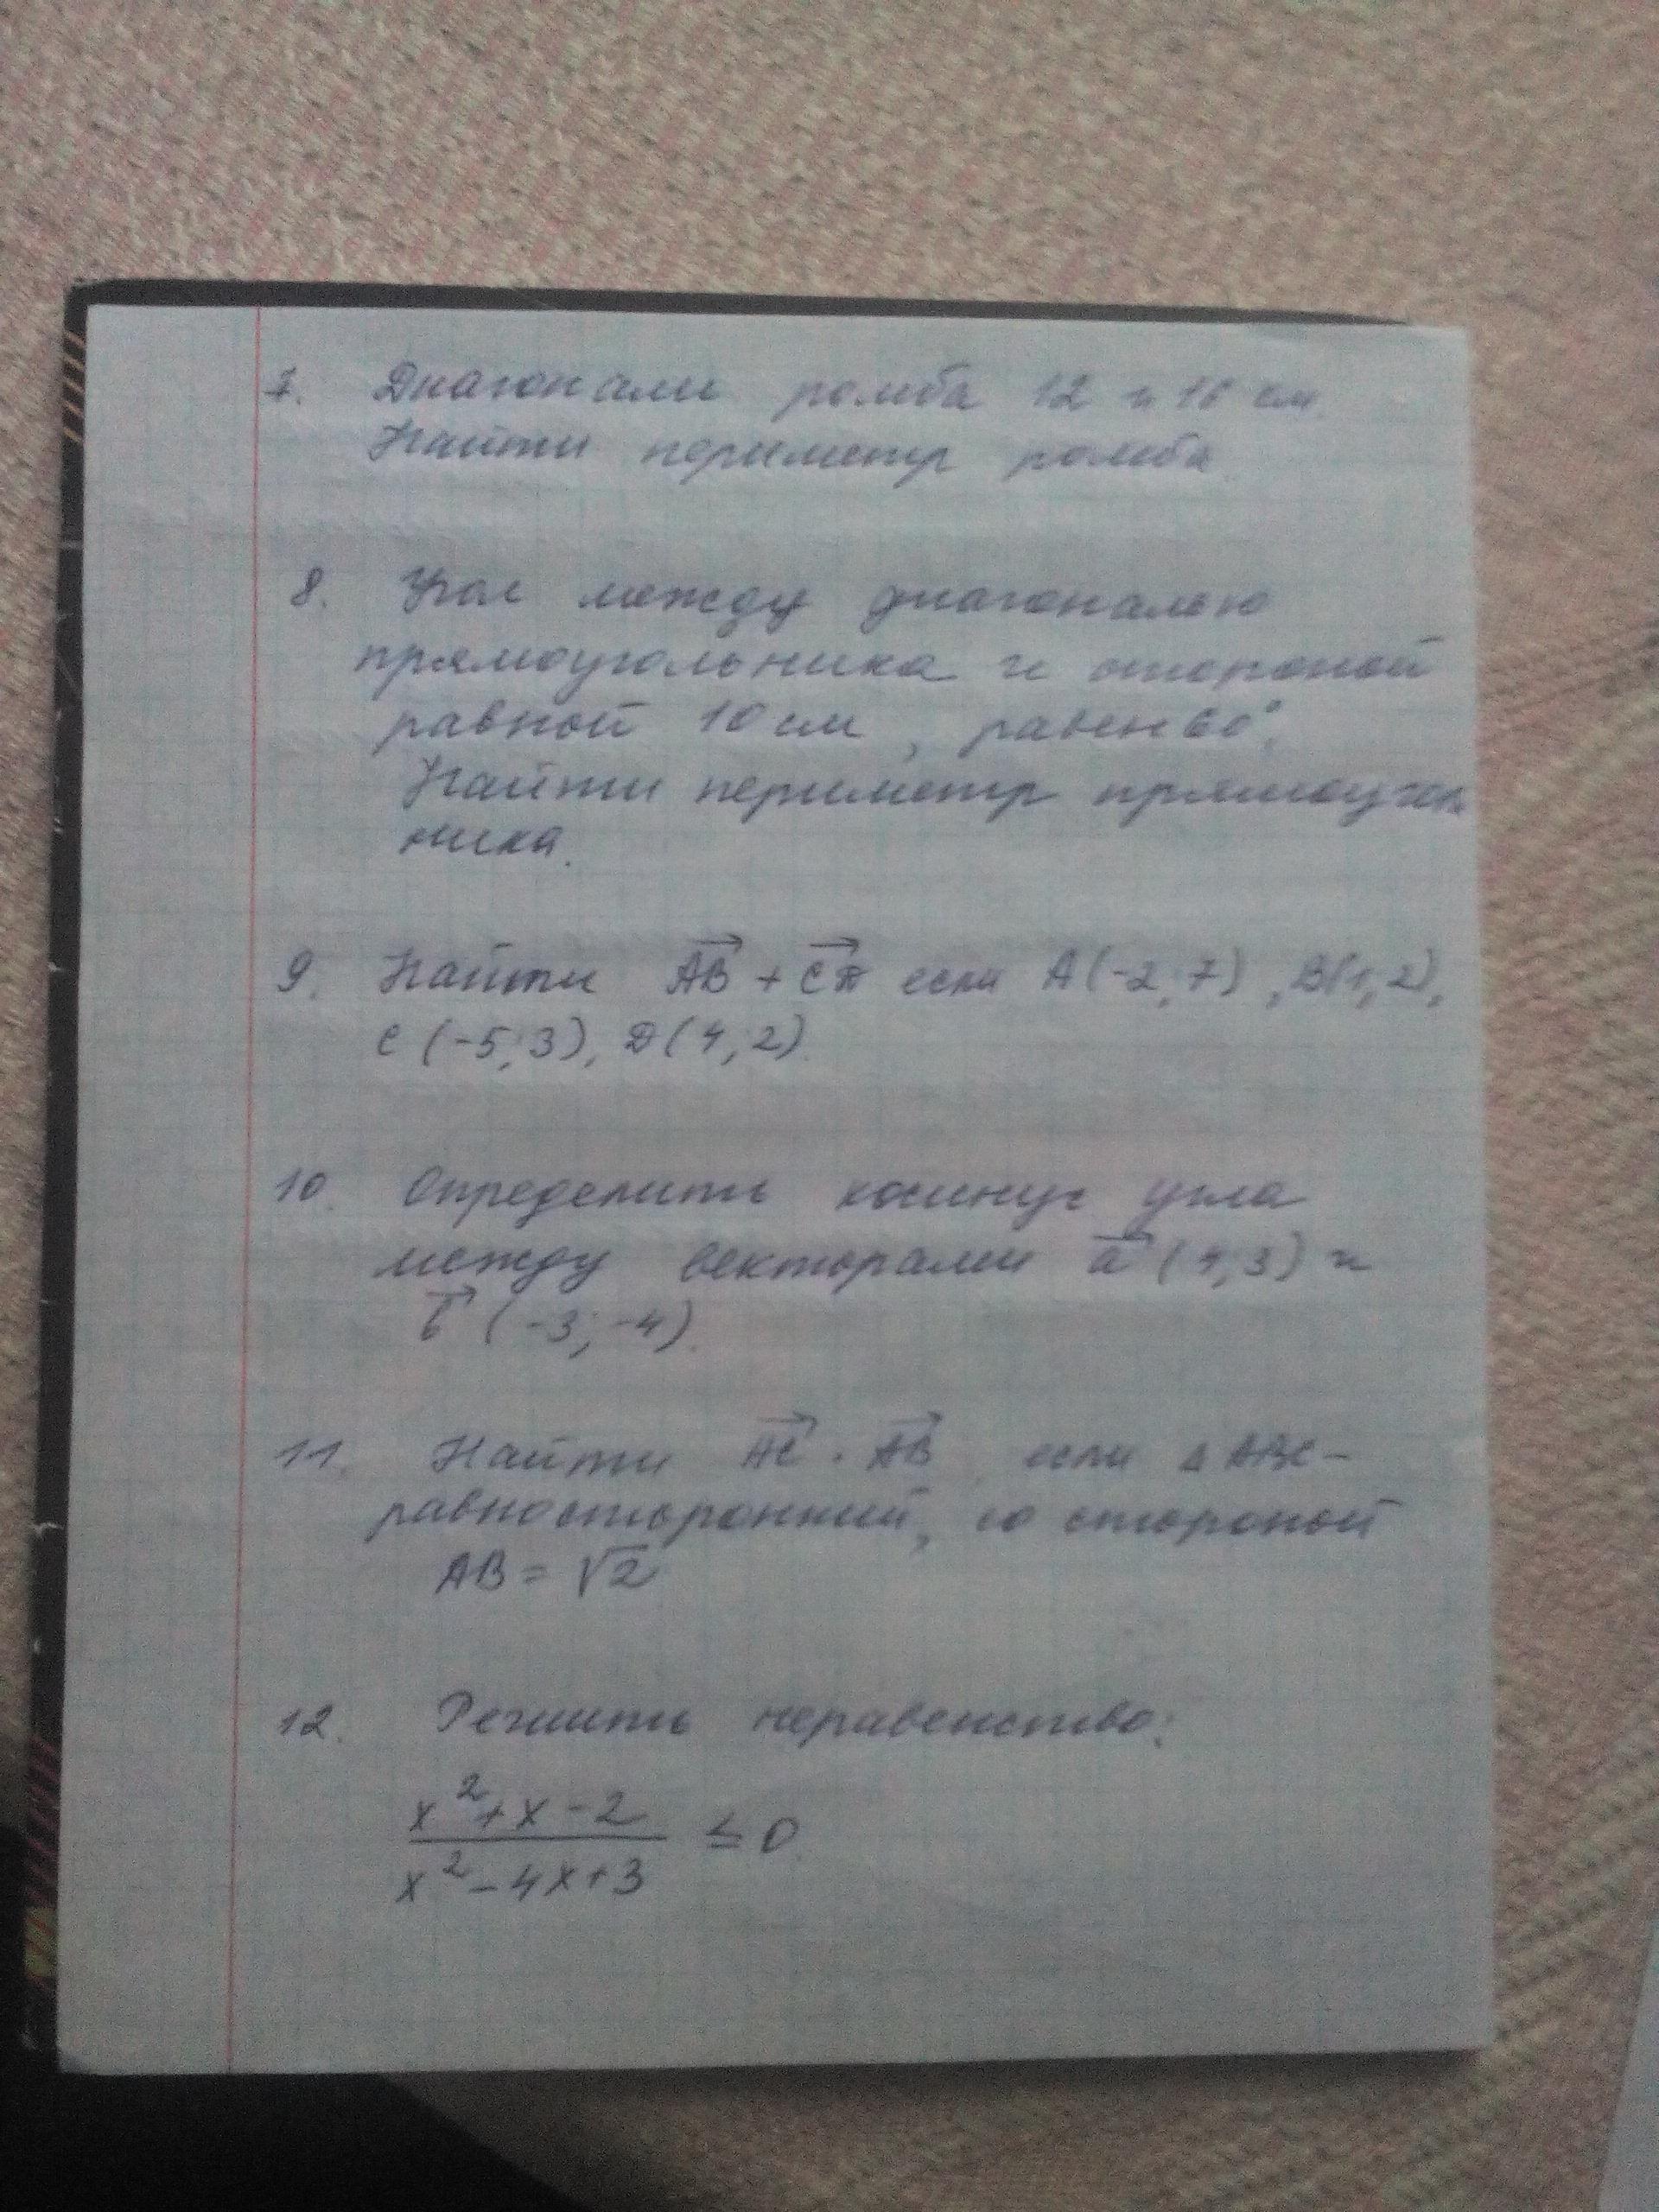 7. Диагонали ромба 12 и 16 см.
Найти периметр ромба
8. Угол между диагональю
прямоугольника и стороной
равной 10 см, равен 60°.
Найти периметр прямоугол
ника.
9. Найти AB + CД если A(-2; 7), B(1; 2),
C (-5; 3), Д(4; 2).
10. Определить косинус угла
между векторами a (4; 3) и
b (-3; -4).
11. Найти AC · AB если Δ ABC -
равносторонний, со стороной
AB = √2
12. Решить неравенство:
x² + x - 2 / x² - 4x + 3 ≤ 0.